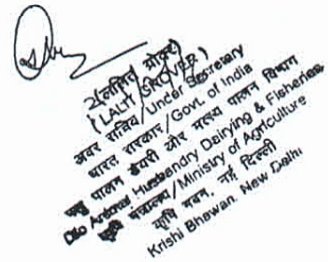 (ललित ग्रोवर)
(LALIT GROVER)
अवर सचिव/Under Secretary
भारत सरकार/Govt. of India
पशु पालन डेयरी और मत्स्य पालन विभाग
D/o Animal Husbendry Dairying & Fisheries
कृषि मंत्रालय/Ministry of Agriculture
कृषि भवन, नई दिल्ली
Krishi Bhawan, New Delhi